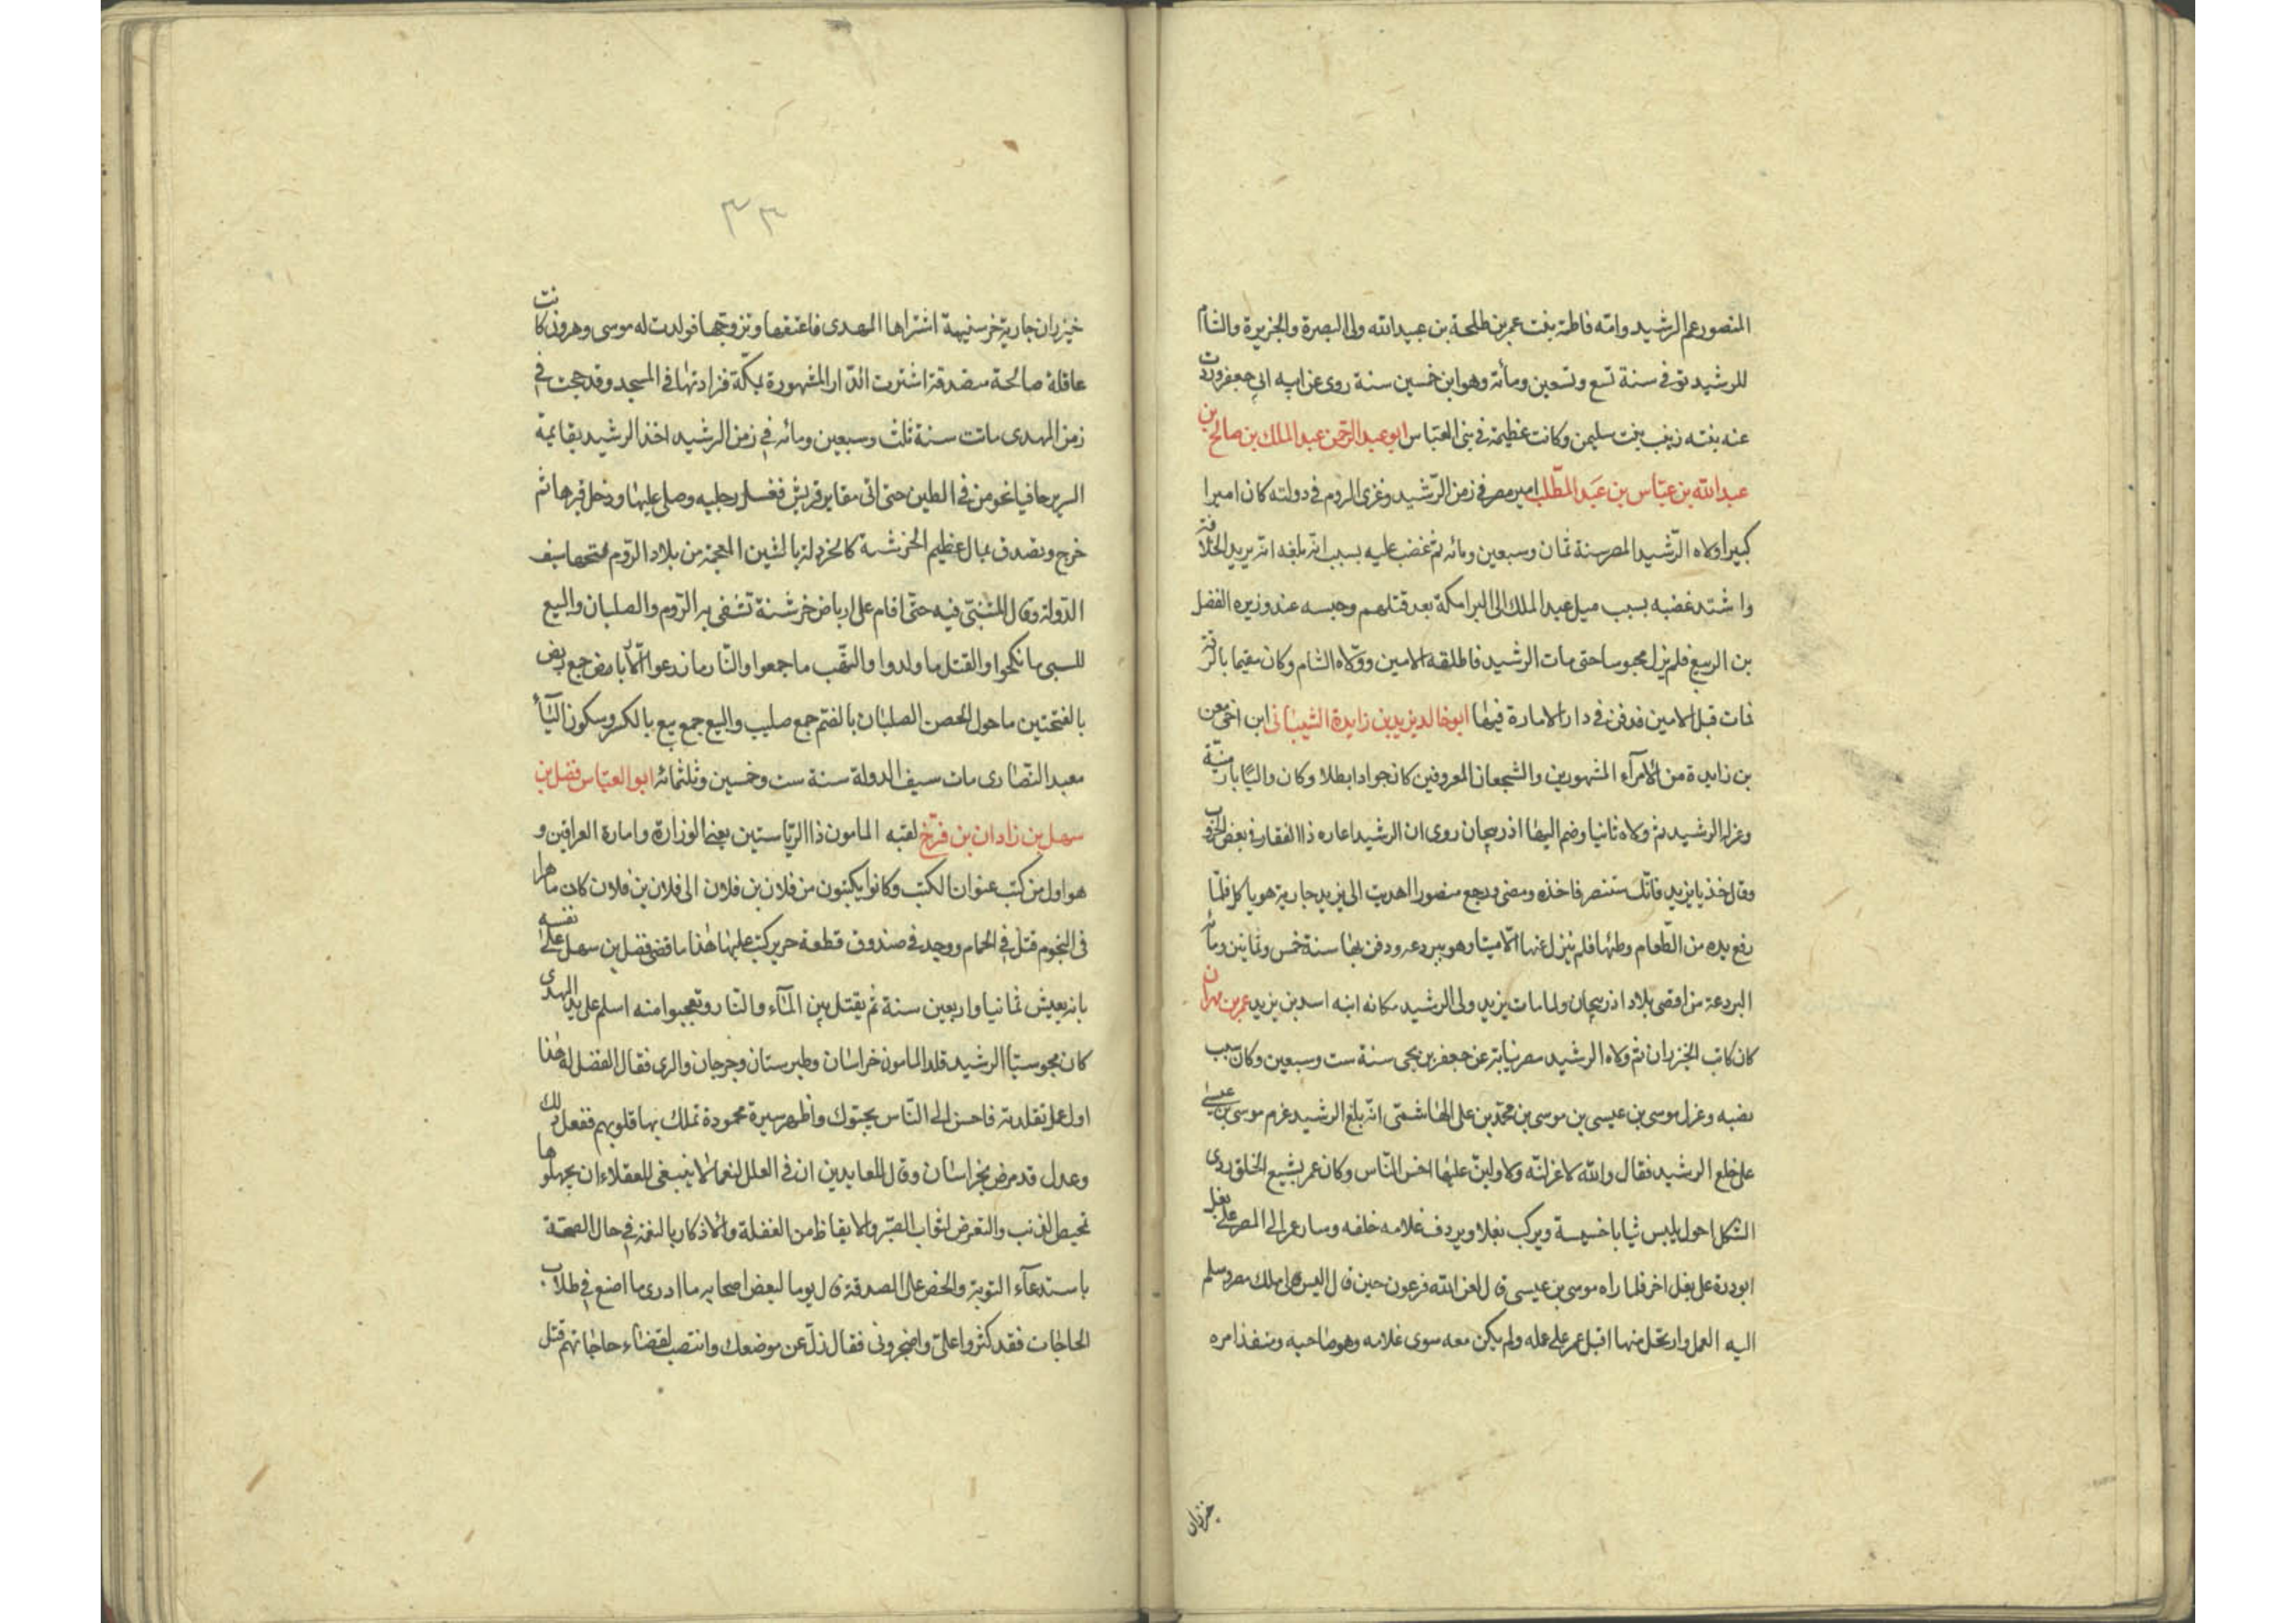 المنصور عم الرشيد وامّه فاطمة بنت عمر بن طلحة بن عبيد الله ولى البصرة والجزيرة والشام
للرشيد توفى سنة تسع وتسعين ومأئة وهو ابن خمسين سنة روى عن ابيه ابى جعفر وروت
عنه بنته زينب بنت سليمن وكانت عظيمة فى بنى العبّاس ابو عبد الرحمن عبد الملك بن صالح بن
عبد الله بن عبّاس بن عبد المطّلب امير مصر فى زمن الرّشيد وغزى الروم فى دولته كان اميرا
كبيرا ولاه الرّشيد المصر سنة ثمان وسبعين ومائه ثم غضب عليه بسبب انّه بلغه انّه يريد الخلافة
واشتد غضبه بسبب ميل عبد الملك الى البرامكة بعد قتلهم وحبسه عند وزيره الفضل
بن الربيع فلم يزل محبوسا حتى مات الرشيد فاطلقه الامين وولّاه الشام وكان مقيما بالرقة
فمات قبل الامين فدفن فى دار الامارة فيها ابو خالد يزيد بن زايدة الشيبانى ابن اخى معن
بن زايدة من الامرآء المشهورين والشجعان المعروفين كان جوادا بطلا وكان واليًا بارمنيّة
وعزله الرشيد ثم ولاه ثانيا وضم اليها اذربيجان روى ان الرشيد اعاره ذا الفقار فى بعض الحروب
وقال خذ يا يزيد فانّك ستنصر فاخذه ومضى ورجع منصورا اهديت الى يزيد جارية هو ياكل فلمّا
رفع يده من الطّعام وطئها فلم ينزل عنها الّا ميتا وهو ببردعه ودفن بها سنة خمس وثمانين ومأئه
البردعة من اقصى بلاد اذربيجان ولما مات يزيد ولى الرشيد مكانه ابنه اسد بن يزيد عمر بن مهران
كان كاتب الخيزران ثم ولاه الرشيد مصر نيابة عن جعفر بن يحيى سنة ست وسبعين وكان سبب
نصبه وعزل موسى بن عيسى بن موسى بن محمّد بن على الهاشمىّ انّه بلغ الرشيد عزم موسى بن عيسى
على خلع الرشيد فقال والله لاعزلنّه ولاولينّ عليها اخس النّاس وكان عمر بشيع الخلق ردى
الشكل احول يلبس ثيابا خسيسة ويركب بغلا ويردف غلامه خلفه وسار عمر الى المصر على بغل
ابو درة على بغل اخر فلما راه موسى بن عيسى قال لعن الله فرعون حين قال اليس لى ملك مصر وسلم
اليه العمل وارتحل منها اقبل عمر على عمله ولم يكن معه سوى غلامه وهو صاحبه ومنفذ امره
خيزران
٣٣
خيزران جارية خرسنيهة اشتراها المهدى فاعتقها وتزوجها فولدت له موسى وهرون كانت
عاقلة صالحة متصدقة اشترت الدّار المشهورة بمكّة فزادتها فى المسجد وقد حجت فى
زمن المهدى ماتت سنة ثلث وسبعين ومائه فى زمن الرشيد اخذ الرشيد بقايمة
السرير حافيا يخومن فى الطين حتى اتى مقابر قريش فغسل رجليه وصلى عليها ودخل قبرها ثم
خرج وتصدق بمال عظيم الخرشنة كالخردلة بالشين المعجمة من بلاد الرّوم فتحها سيف
الدّولة وقال المتنبّى فيه حتّى اقام على ارباض خرشنة تشقى به الرّوم والصلبان والبيع
للسبى ما نكحوا والقتل ما ولدوا والنهب ما جمعوا والنّار ما زرعوا الّاباض جمع ربض
بالفتحتين ما حول الحصن الصلبان بالضّم جمع صليب والبيع جمع بيع بالكسر وسكون اليأ
معبد النصارى مات سيف الدولة سنة ست وخمسين وثلثمائه ابو العبّاس فضل بن
سهل بن زادان بن فرّخ لقبه المامون ذا الرّياستين يعنى الوزارة وامارة العراقين و
هو اول من كتب عنوان الكتب وكانوا يكتبون من فلان بن فلان الى فلان بن فلان كان ماهرا
فى النجوم قتل فى الحمام ووجد فى صندوق قطعة حرير كتب عليها هذا ما قضى فضل بن سهل على نفسه
بانه يعيش ثمانيا واربعين سنة ثم يقتل بين المآء والنّار وتعجبوا منه اسلم على يد المهدى
كان مجوسيًا الرشيد قلد المامون خراسان وطبرستان وجرجان والرى فقال الفضل له هذا
اول عمل تقلدته فاحسن الى النّاس يحبّوك واظهر سيرة محمودة تملك بها قلوبهم ففعل ذلك
وعدل قد مرض بخراسان وقال للعايدين ان فى العلل لنعما لا ينبغى للعقلاء ان يجهلوها
تمحيص الذنب والتعرض لثواب الصّبر والايقاظ من الغفلة والاذكار بالنعمة فى حال الصحّة
باستدعآء التوبة والحض على الصدقة قال يوما لبعض اصحابه ما ادرى ما اصنع فى طلاب
الحاجات فقد كثروا علىّ واضجرونى فقال زلّ عن موضعك وانتصب لقضاء حاجاتهم قتل